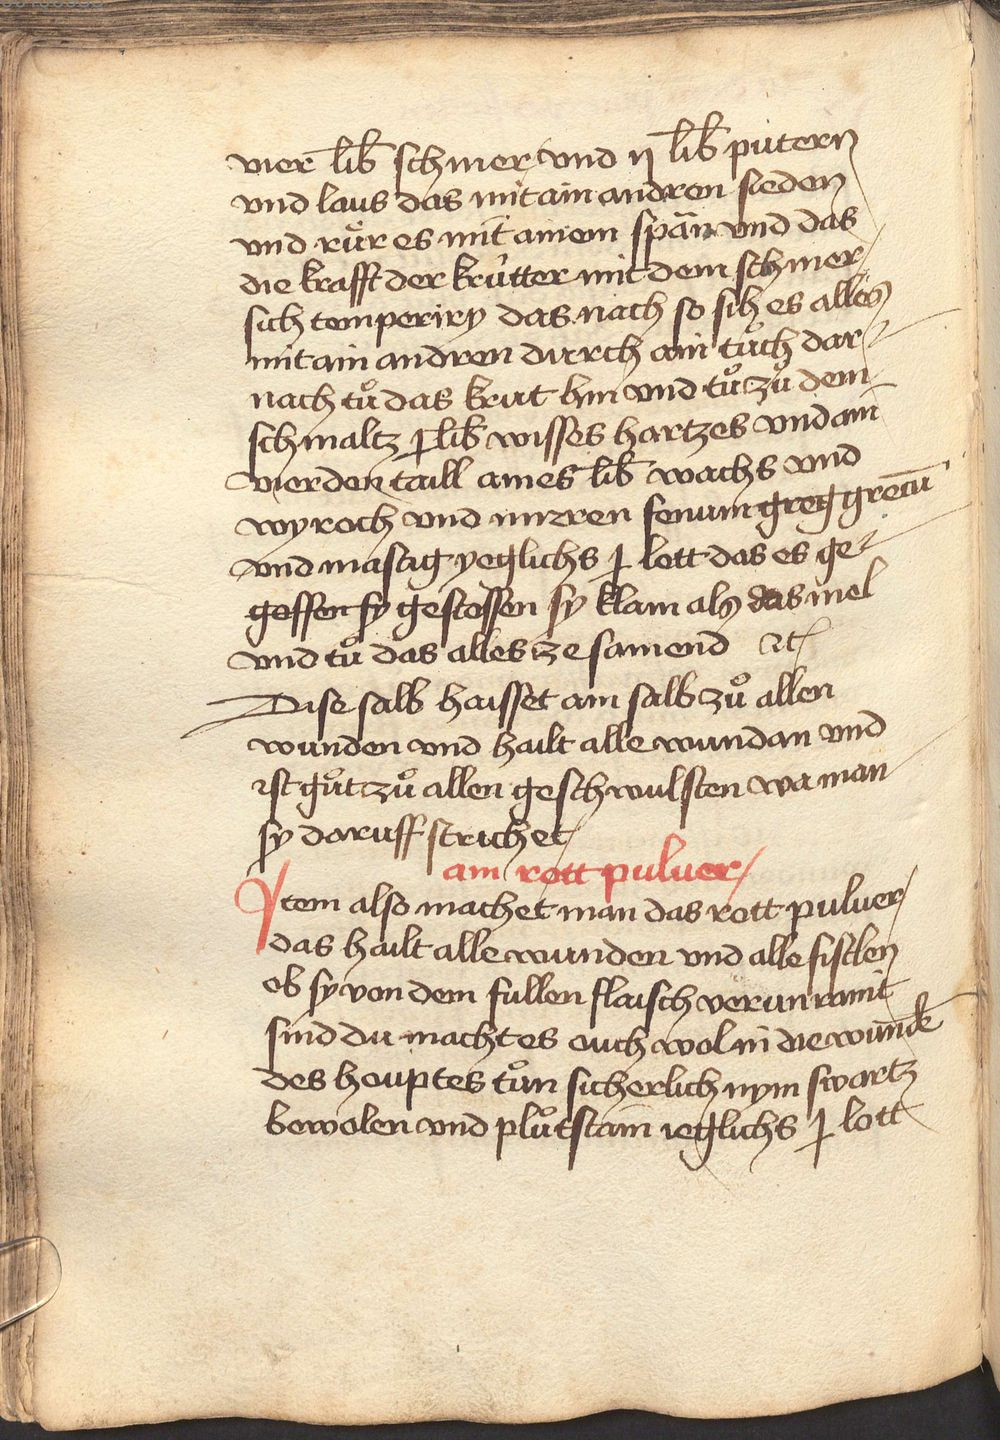 vier lib schmer vnd ij lib pütern
vnd laus das mit ain andren sieden
vnd růr es mit ainem spän vnd das
die krafft der krútter mit dem schmer
sich temperiry das nach so sih es alles
mit ain andren durch ain tůch dar
nach tů das krut hin vnd tů zů dem
schmaltz j lib wisses hartzes vnd ain
vierden taill aines lib wachs vnd
wyroch vnd mirren fenum greg grecū
vnd mastig yeglichs j lott das es ge
goffen sy gestossen sy klain als das mel
vnd tů das alles ze samend etc
Dise salb haisset ain salb zů allen
wunden vnd hailt alle wundan vnd
ist gůt zů allen geschwulsten wa man
sy daruff strichet
ain rott puluer
Item also machet man das rott puluer
das hailt alle wunden vnd alle fistlen
ob sy von dem fullen flaisch verunraint
sind du macht es ouch wol in die wunde
des houptes tůn sicherlich nym swartz
bewolen vnd plůtstain ieglichs j lott